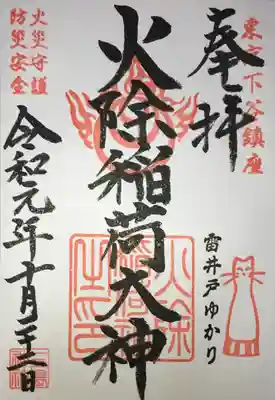 奉拝
東京下谷鎮座
火除稲荷大神
雷井戸ゆかり
火災守護
防災安全
令和元年十月二十二日